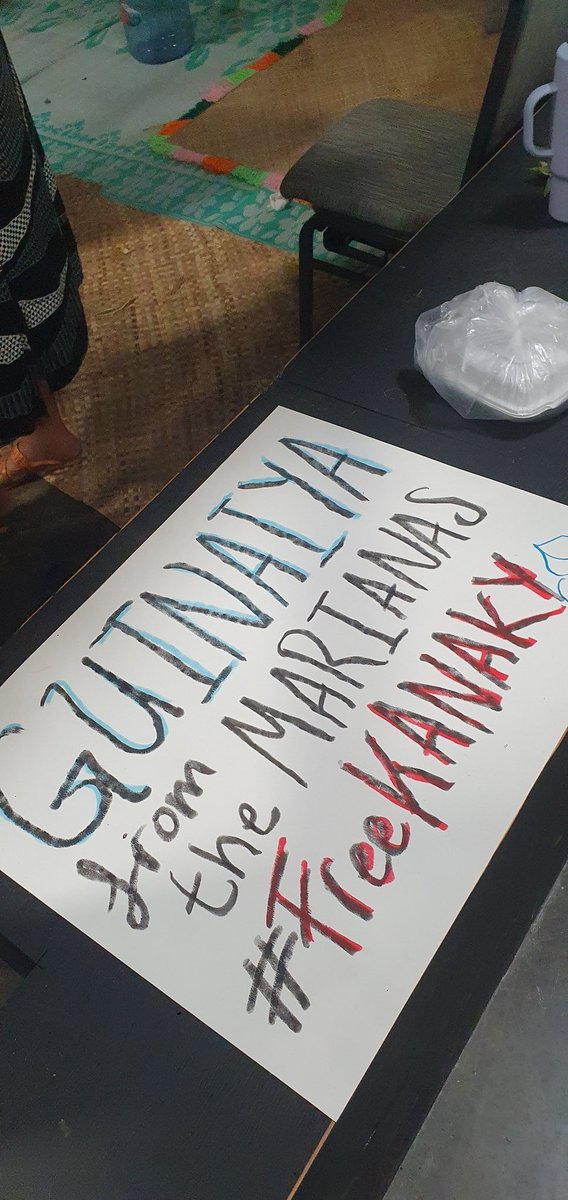 GUINAIYA
from
the MARIANAS
#FreeKANAKY